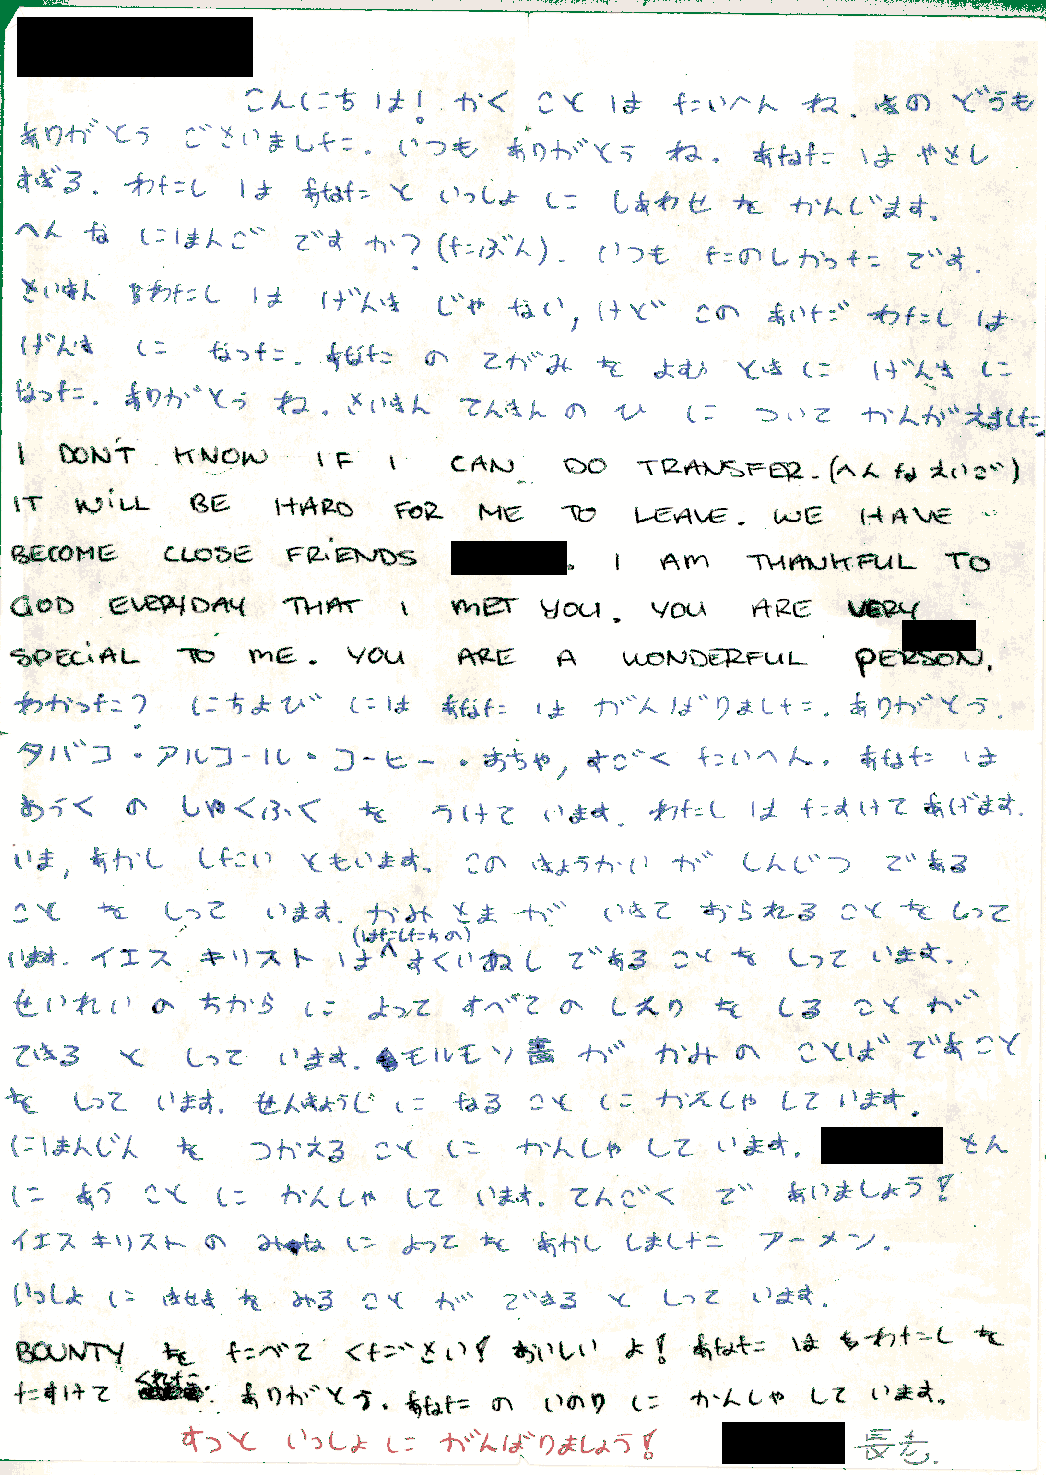 こんにちは! かく こと は たいへん ね. きの どうも
ありがとう ございました. いつも ありがとう ね. あなた は やさし
すぎる. わたし は あなた と いっしょ に しあわせ を かんじます.
へん な にほんご です か? (たぶん). いつも たのしかった です.
さいきん わたし は げんき じゃ ない, けど この あいだ わたし は
げんき に なった. あなた の てがみ を よむ とき に げんき に
なった. ありがとう ね. さいきん てんきん の ひ に ついて かんがえました.
I DON'T KNOW IF I CAN DO TRANSFER. (へん な えいご)
IT WILL BE HARD FOR ME TO LEAVE. WE HAVE
BECOME CLOSE FRIENDS . I AM THANKFUL TO
GOD EVERYDAY THAT I MET YOU. YOU ARE VERY
SPECIAL TO ME. YOU ARE A WONDERFUL PERSON.
わかった? にちよび には あなた は がんばりました. ありがとう.
タバコ・アルコール・コーヒー・おちゃ, すごく たいへん. あなた は
おうく の しゅくふく を うけて います. わたし は たすけて あげます.
いま, あかし したい ともいます. この きょうかい が しんじつ で ある
こと を しって います. かみ さま が いきて おられる こと を しって
います. イエス キリスト は (わたしたちの) すくいぬし で ある こと を しって います.
せいれい の ちから に よって すべて の しんり を しる こと が
できる と しって います. モルモン書 が かみ の ことば であこと
を しって います. せんきょうし に なる こと に かんしゃ して います.
にほんじん を つかえる こと に かんしゃ して います. さん
に あう こと に かんしゃ して います. てんごく で あいましょう!
イエス キリスト の みな に よって を あかし しました アーメン.
いっしょ に きせき を みる こと が できる と しって います.
BOUNTY を たべて ください! おいしい よ! あなた は わたし を
たすけて くれた. ありがとう. あなた の いのり に かんしゃ して います.
ずっと いっしょ に がんばりましょう! 長老.